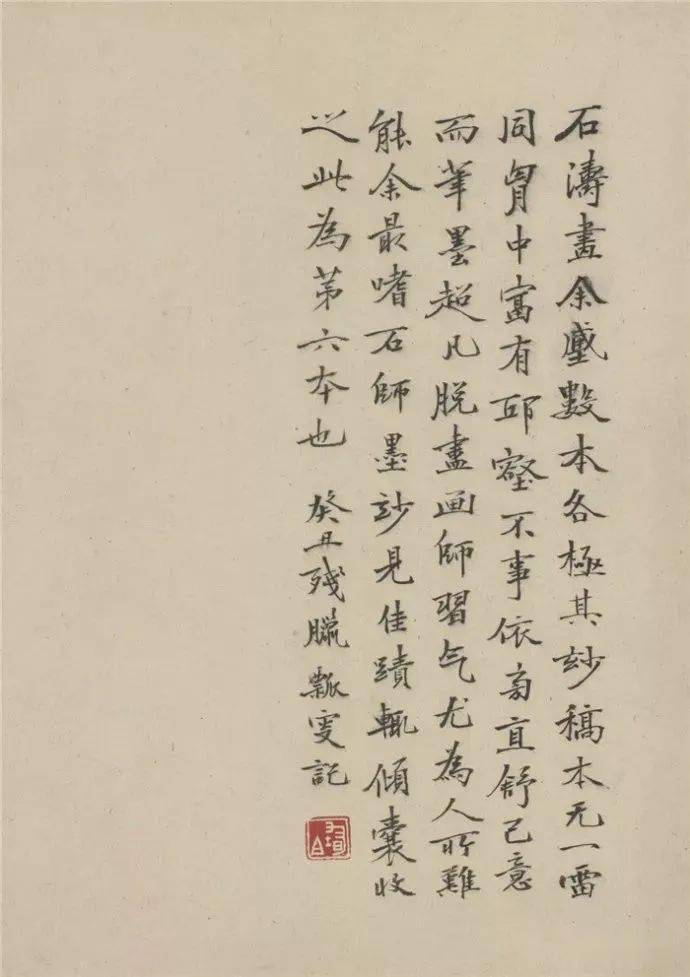 石濤畫余數本各極其玅稿本无一雷
同胷中富有邱壑不事依旁直舒己意
而筆墨超凡脫盡画師習气尤為人所難
能余最嗜石師墨玅見佳蹟輒傾囊收
之此為第六本也 癸丑殘臘瓢叟記